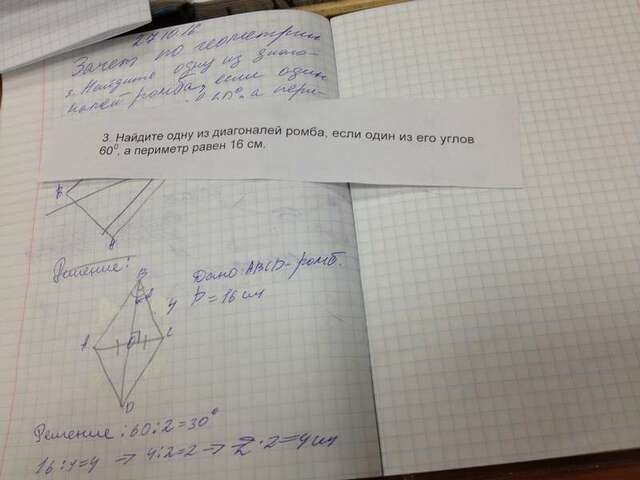 Зачет по геометрии
3. Найдите одну из диаго-
налей ромба, если один
3. Найдите одну из диагоналей ромба, если один из его углов
60°, а периметр равен 16 см.
Решение:
Дано: ABCD-ромб
P=16 см
B
A
C
D
4
Решение: 60:2=30°
16:4=4 ⇒ 4:2=2 ⇒ 2·2=4см